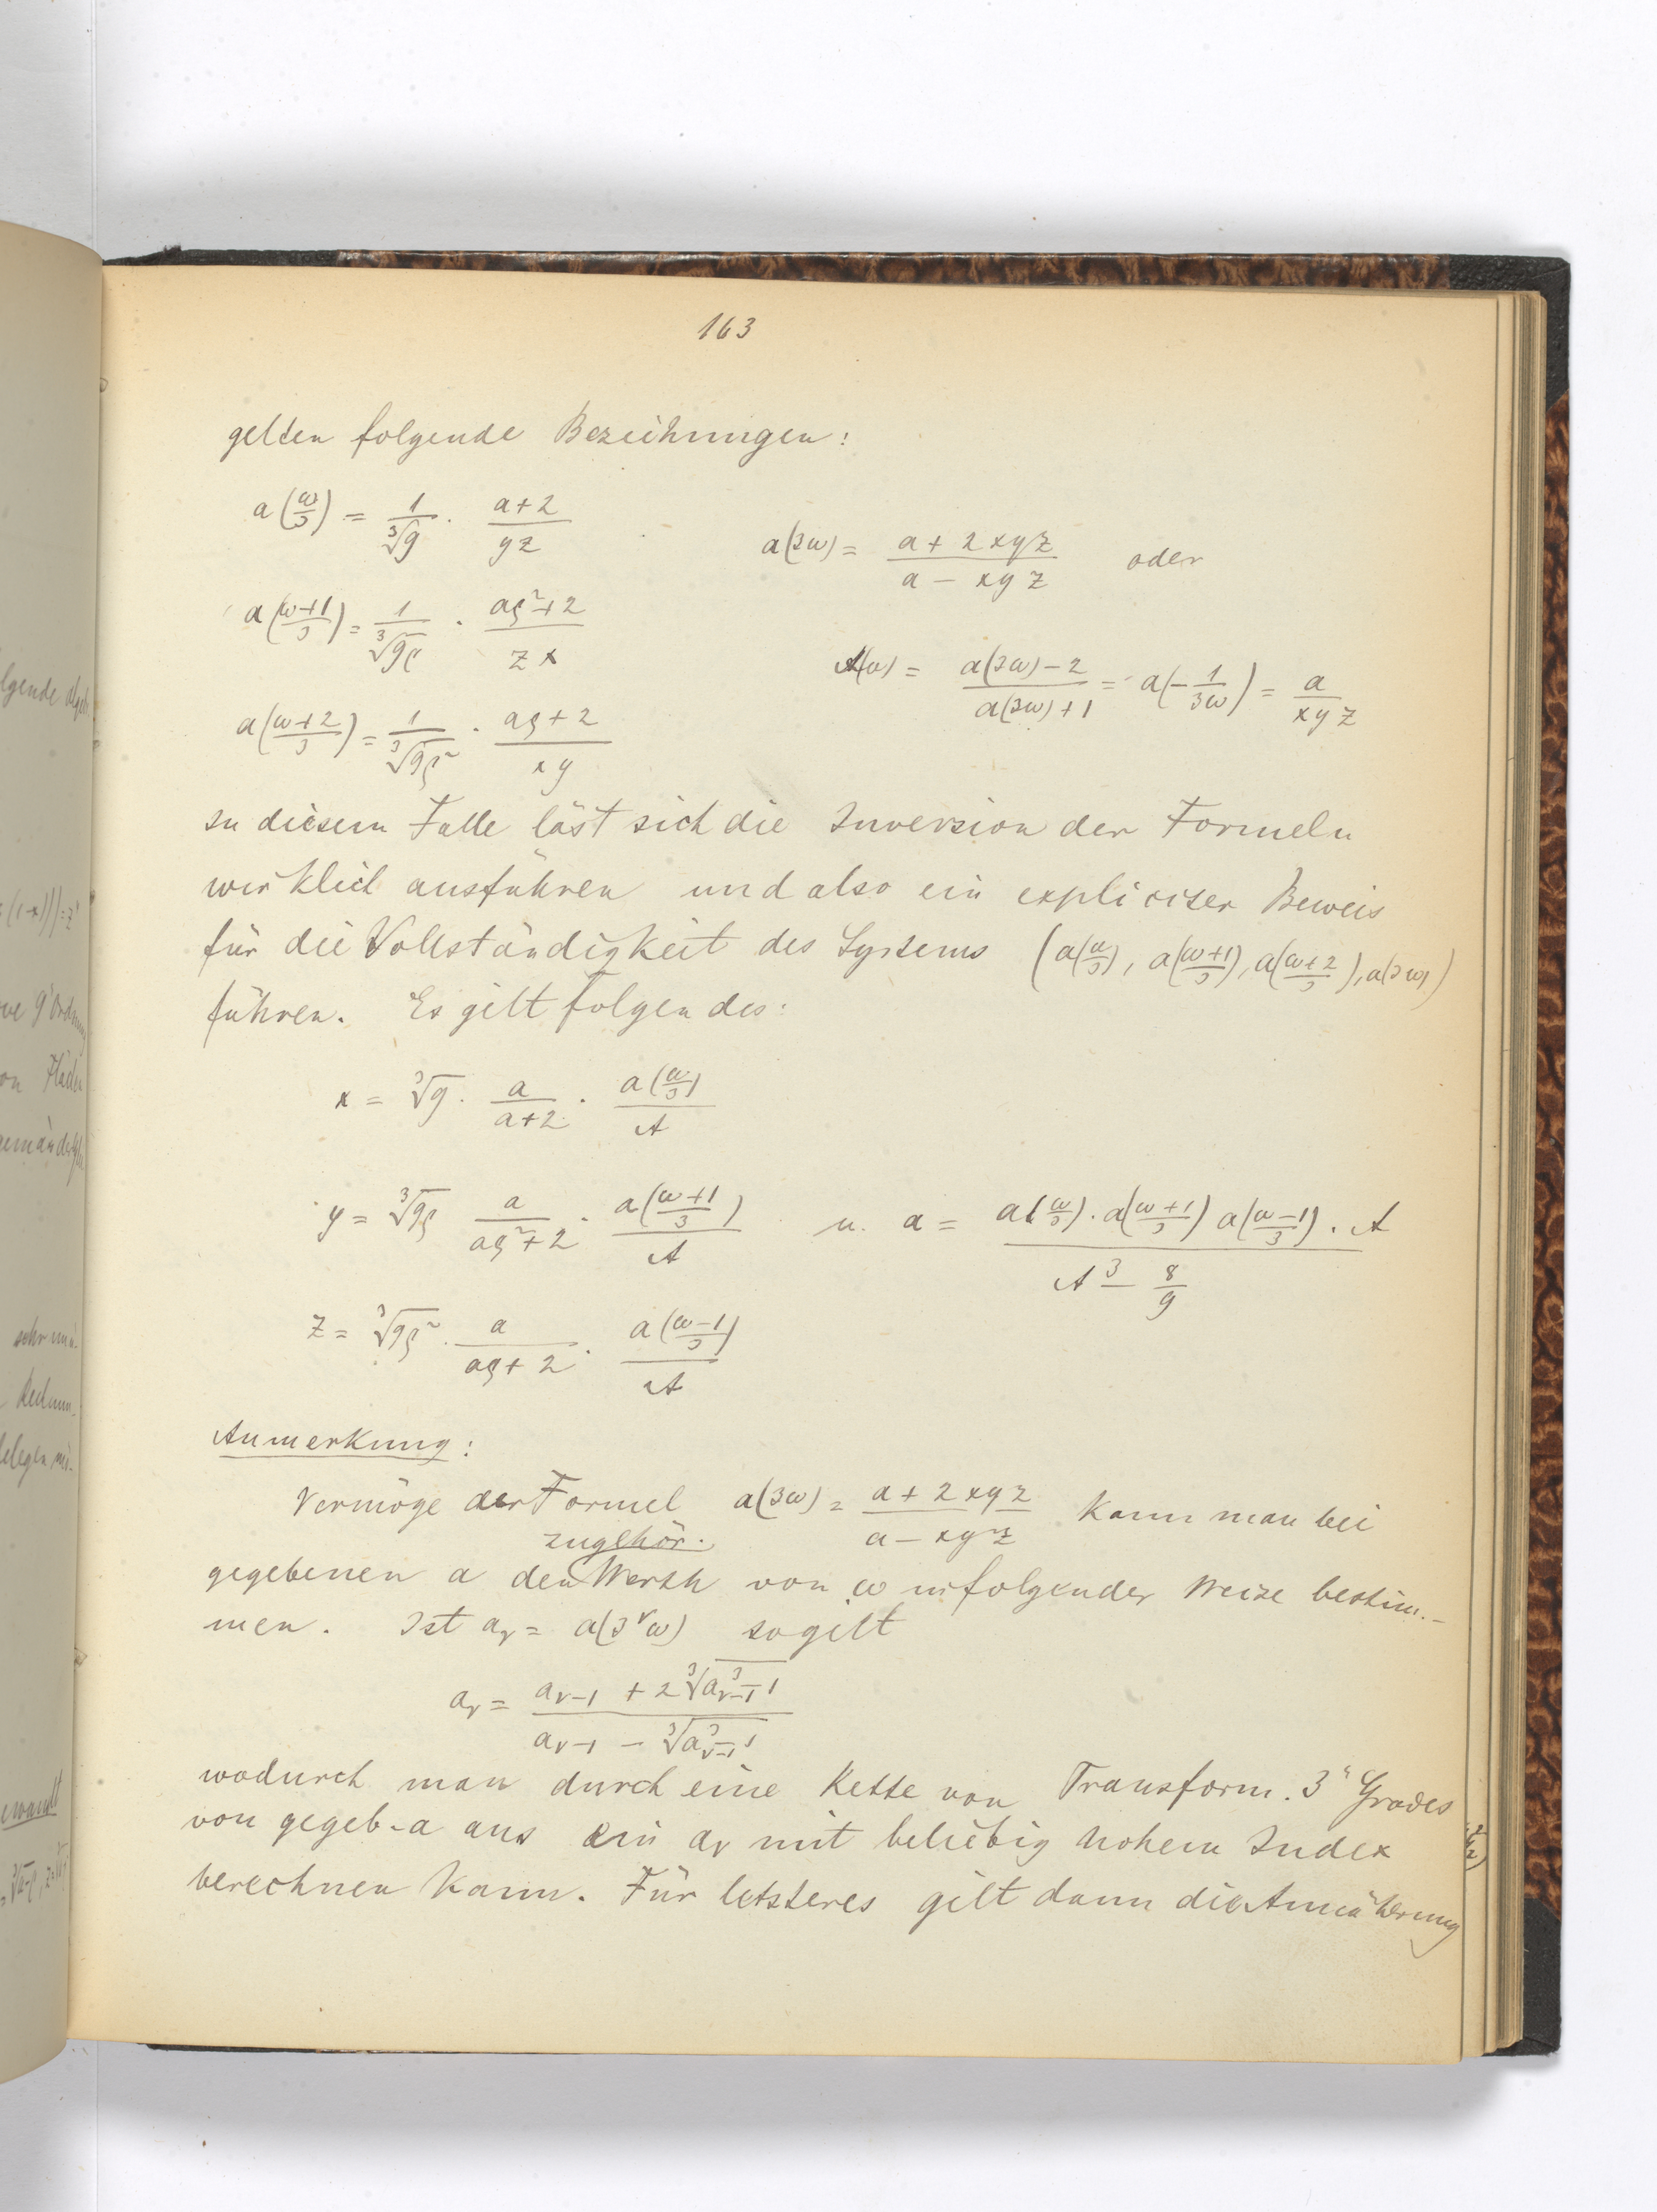 163
gelten folgende Bezeihungen:
a(ω/3) = 1/∛9 · (a+2)/(yz)
a(3ω) = (a + 2xyz)/(a − xyz) oder
a((ω+1)/3) = 1/∛(9ρ) · (aρ²+2)/(zx)
A(ω) = (a(3ω)−2)/(a(3ω)+1) = a(−1/(3ω)) = a/(xyz)
a((ω+2)/3) = 1/∛(9ρ²) · (aρ+2)/(xy)
In diesem Falle läst sich die Inversion der Formeln
wirklich ausführen und also ein expliciter Beweis
für die Vollständigkeit des Systems (a(ω/3), a((ω+1)/3), a((ω+2)/3), a(3ω))
führen. Es gilt folgendes:
x = ∛9 · a/(a+2) · a(ω/3)/A
y = ∛(9ρ) a/(aρ²+2) · a((ω+1)/3)/A u. a = (a(ω/3) · a((ω+1)/3) a((ω−1)/3) · A)/(A³ − 8/9)
z = ∛(9ρ²) · a/(aρ+2) · a((ω−1)/3)/A
Anmerkung:
Vermöge der Formel a(3ω) = (a + 2xyz)/(a − xyz) kann man bei
zugehör.
gegebenen a den Werth von ω in folgender Weise bestim-
men. Ist aᵥ = a(3ᵛω) so gilt
aᵥ = (aᵥ₋₁ + 2∛(a³ᵥ₋₁−1))/(aᵥ₋₁ − ∛(a³ᵥ₋₁−1))
wodurch man durch eine Kette von Transform. 3ⁿ Grades
von gegeb. a aus ein aᵥ mit beliebig hohem Index
berechnen kann. Für letzteres gilt dann die Annäherung